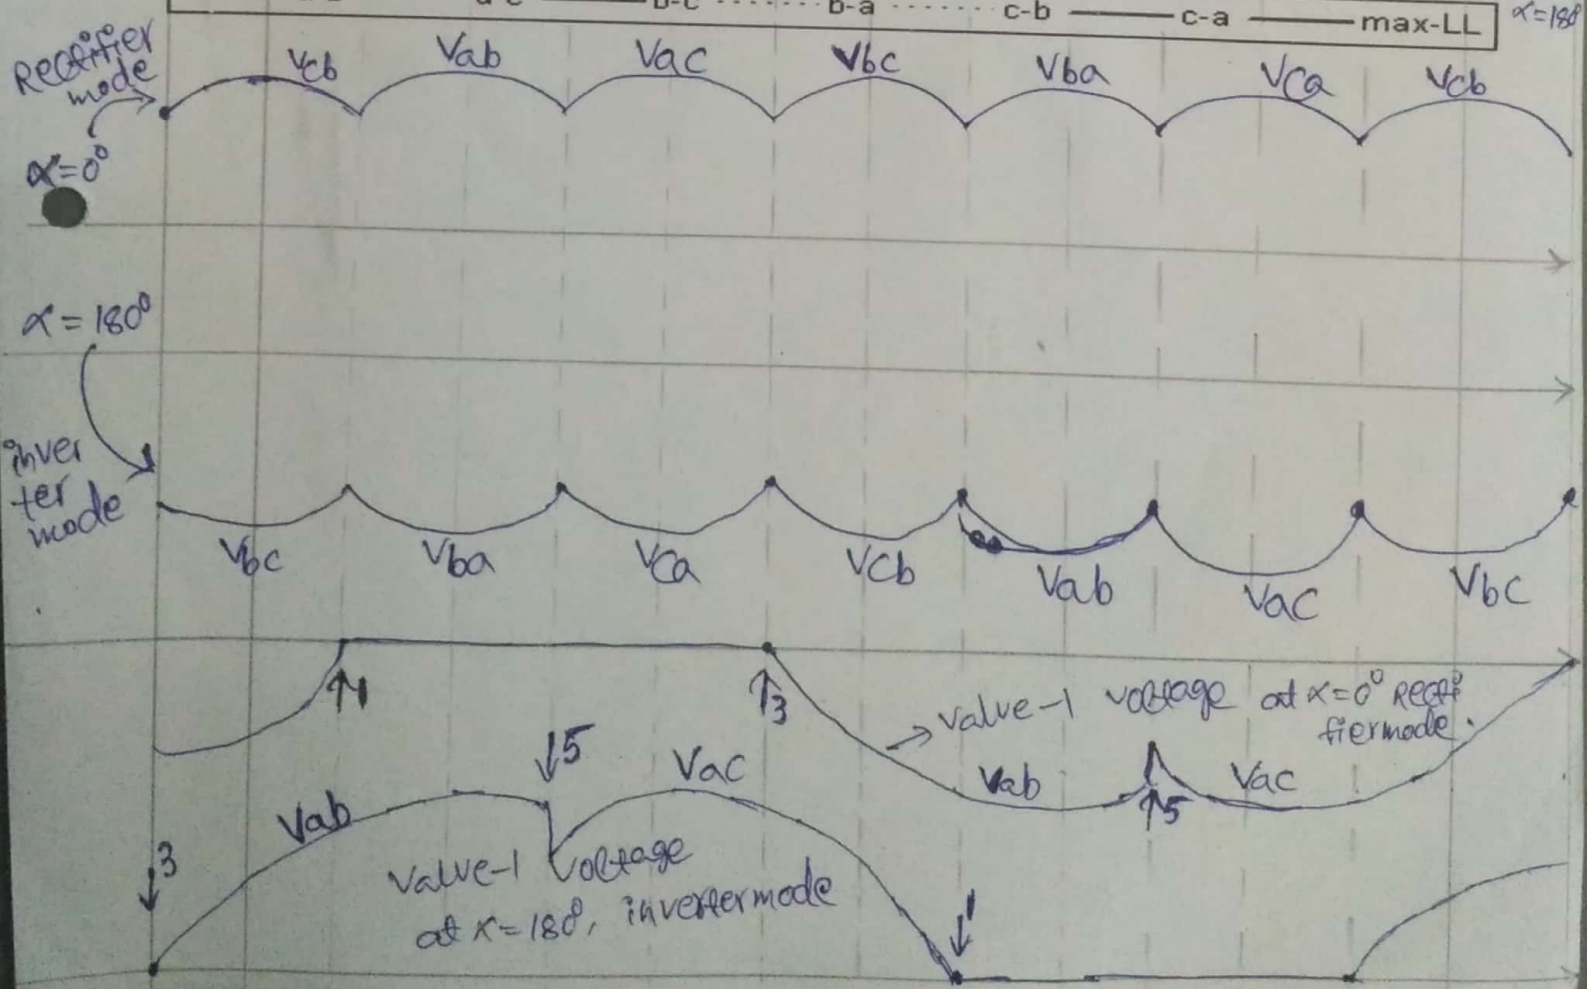 b-a ........ c-b ——— c-a ——— max-LL
α=180
Rectifier
mode
Vcb Vab Vac Vbc Vba Vca Vcb
α=0°
α=180°
inver
ter
mode
Vbc Vba Vca Vcb Vab Vac Vbc
↑1 ↑3
valve-1 voltage at α=0° Recti
fiermode.
↓5 Vac Vab ↑5 Vac
Vab
↓3
valve-1 voltage
at α=180°, invertermode
↓1